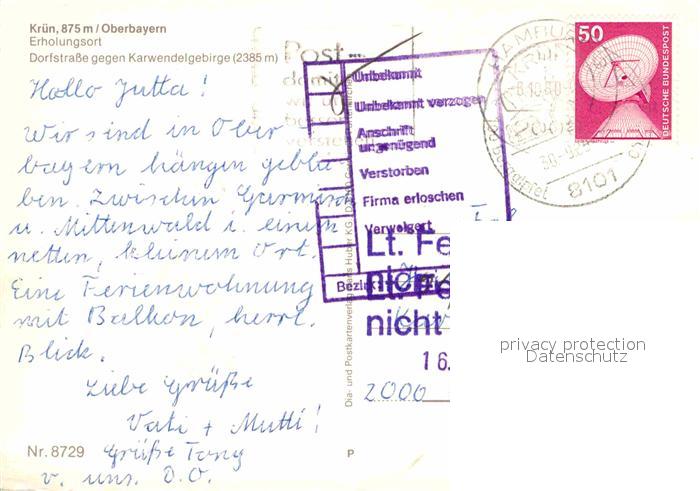 Krün, 875 m / Oberbayern
Erholungsort
Dorfstraße gegen Karwendelgebirge (2385 m)
Hallo Jutta!
Wir sind in Ober
bayern hängen geblie
ben. Zwischen Garmisch
u. Mittenwald i. einem
netten, kleinem Ort.
Eine Ferienwohnung
mit Balkon, herrl.
Blick.
Liebe Grüße
Vati + Mutti!
Grüße Tony
v. uns. D.O.
Nr. 8729
P
Dia- und Postkartenverlag Huber KG
Post
Unbekannt
Unbekannt verzogen
Anschrift
ungenügend
Verstorben
Firma erloschen
Verweigert
Bezirk
Lt. Fe
nicht
Lt. Fe
nicht
16.
2000
HAMBURG
KRÜN
8101
50
DEUTSCHE BUNDESPOST
privacy protection
Datenschutz